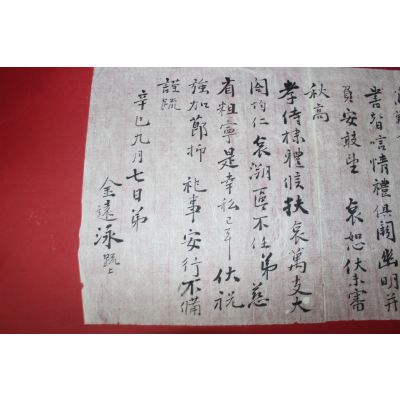 書替信情禮俱闕幽明并
負安敢望 哀恕伏未審
秋高
孝侍棣禮候扶哀萬支大
閤均仁哀溯區不任弟慈
有粗寧是幸私已耳伏祝
強加節抑 祀事安行不備
謹疏
辛巳九月七日弟
金遠泳疏上